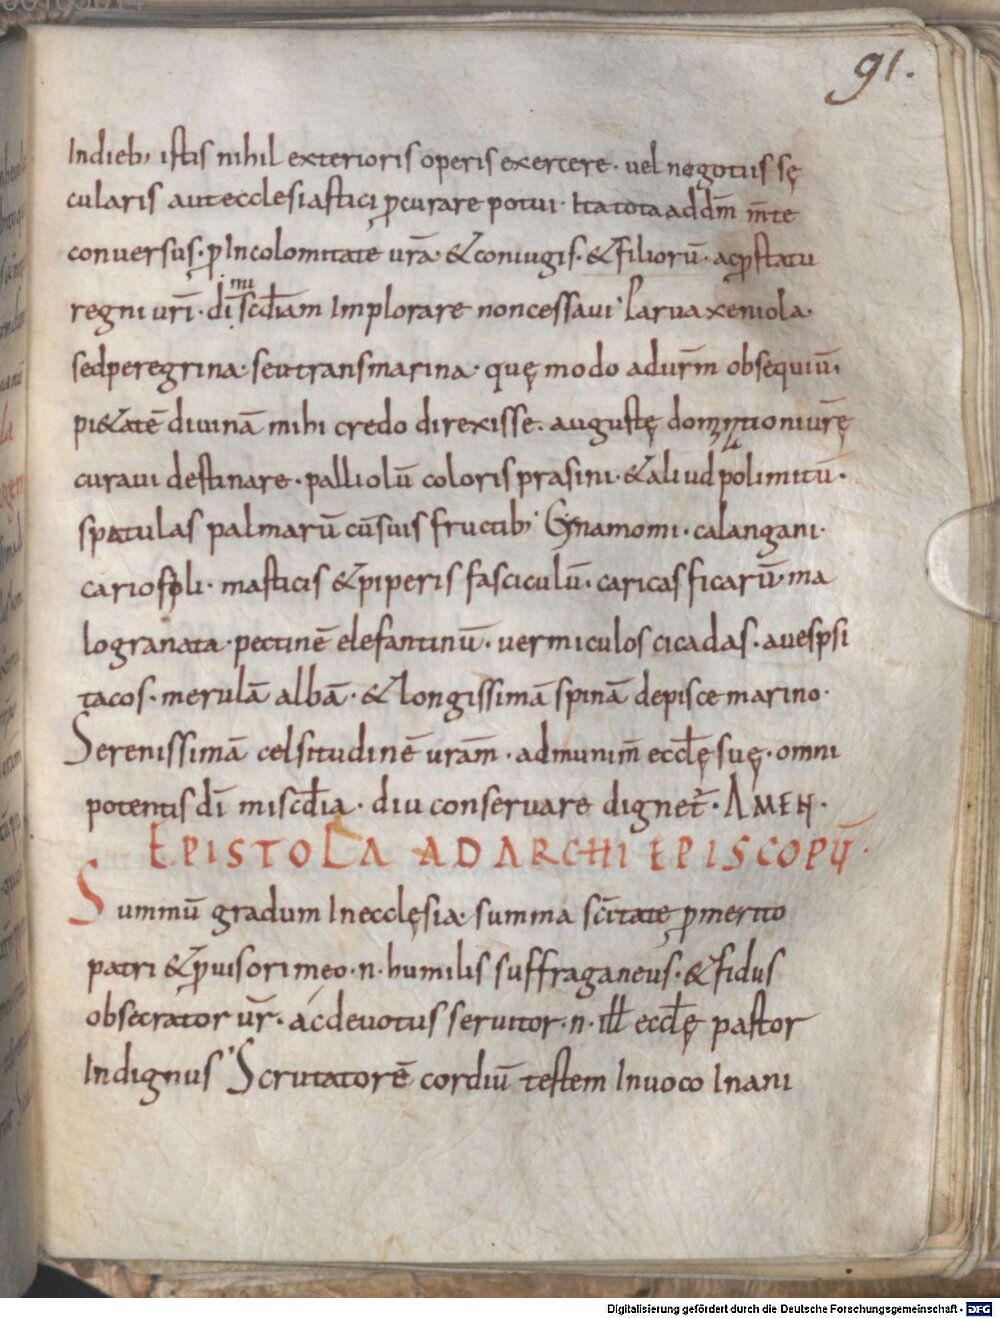 91.
Indieb; istis nihil exterioris operis exercere· vel negotiis sę
cularis aut ecclesiastici ꝓcurare potui· Ita tota ad dm̄ m̄te
conversus· ꝓ Incolomitate urā· & coniugis· & filiorū· ac ꝓ statu
regni uri᷒· di᷒ mi scd̄iam Implorare non cessaui· Parva xeniola·
sed peregrina· seu transmarina· quę modo ad urm̄ obsequiū·
pi&atē diuinā mihi credo direxisse· augustę dominationi urę
curaui destinare· palliolū coloris prasini· & aliud polimitū·
spatulas palmarū cū suis fructib; Cynamomi· calangani·
cariofoli· masticis & piperis fasciculū· caricas ficarū· ma
logranata· pectinē elefantinū· vermiculos cicadas· aues psi
tacos· merulā albā· & longissimā spinā de pisce marino·
Serenissimā celsitudinē urām· ad munim̄ eccłę suę· omni
potentis di᷒ miscd̄ia· diu conservare dignet᷒· AMEN·
EPISTOLA AD ARCHIEPISCOPŪ·
Summū gradum In ecclęsia· summa sc̄itate ꝓmerito
patri & ꝓuisori meo· n· humilis suffraganeus· & fidus
obsecrator ur̄· ac devotus servitor· n· ill eccłę pastor
Indignus· Scrutatorē cordiū testem Invoco Inani
Digitalisierung gefördert durch die Deutsche Forschungsgemeinschaft · DFG